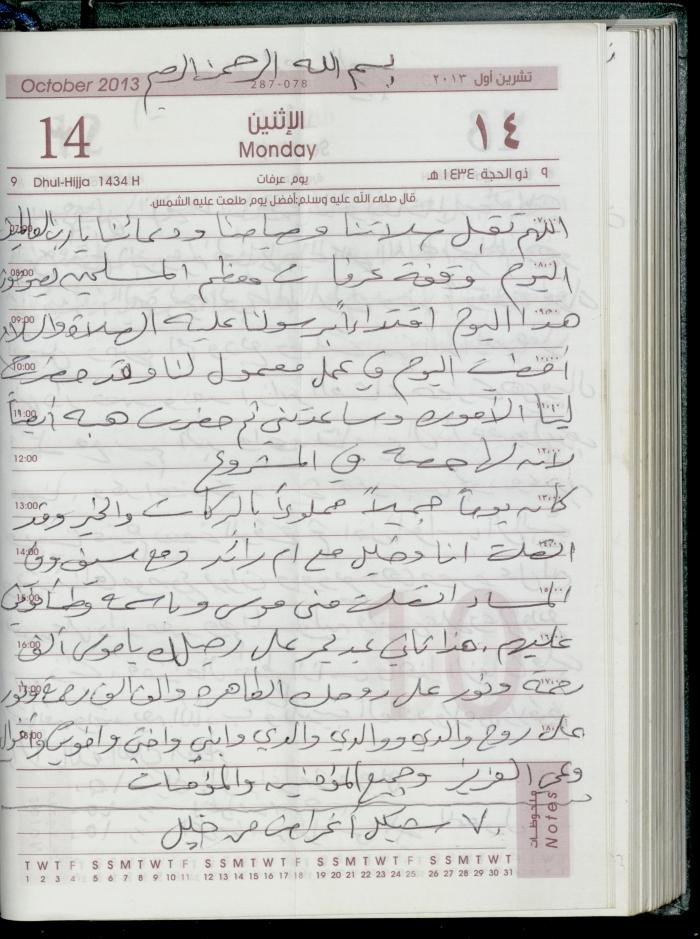 بسم الله الرحمن الرحيم
October 2013
287-078
تشرين أول ٢٠١٣
14
الإثنين
Monday
١٤
9 Dhul-Hijja 1434 H
يوم عرفات
٩ ذو الحجة ١٤٣٤ هـ
قال صلى الله عليه وسلم:أفضل يوم طلعت عليه الشمس.
اللهم تقبل صلاتنا وصيامنا ودعائنا يا رب العالمين
اليوم وقفة عرفات ومعظم المسلمين يصومون
هذا اليوم اقتداءاً برسولنا عليه الصلاة والسلام
اليوم في عمل معمول لنا وقد حضرت
لينا وساعدتني ثم حضرت هبه أيضاً
لأنه لها حصة في المشروع
كان يوماً جميلاً مملوءاً بالبركات والخير وقد
اتصلت انا وخليل مع ام رائد ومع وفي
المساء اتصلت منى موسى وباسمة
عليهم. هذا ثاني عيد يمر على رحيلك يا موسى ألف
رحمة ونور على روحك الطاهرة والف الف رحمة ونور
على روح والدي ووالدي والدي وابني واختي واخوتي
وعمي العزيز وجميع المؤمنين والمؤمنات
٧٠ شيكل أغراض من خليل
07:00
08:00
09:00
10:00
11:00
12:00
13:00
14:00
15:00
16:00
17:00
18:00
ملاحظات
Notes
T W T F S S M T W T F S S M T W T F S S M T W T F S S M T W T
1 2 3 4 5 6 7 8 9 10 11 12 13 14 15 16 17 18 19 20 21 22 23 24 25 26 27 28 29 30 31